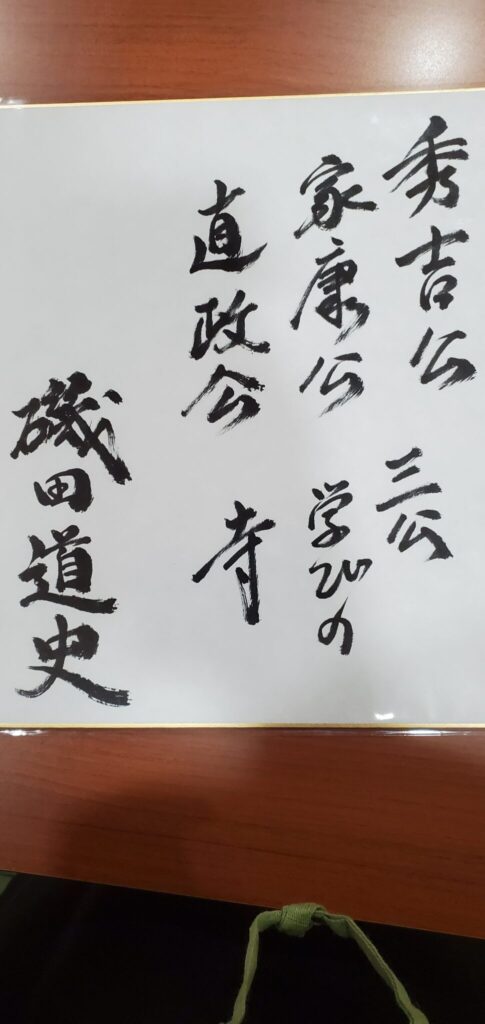 秀吉公 三公
家康公 学びの
直政公 寺
磯田道史